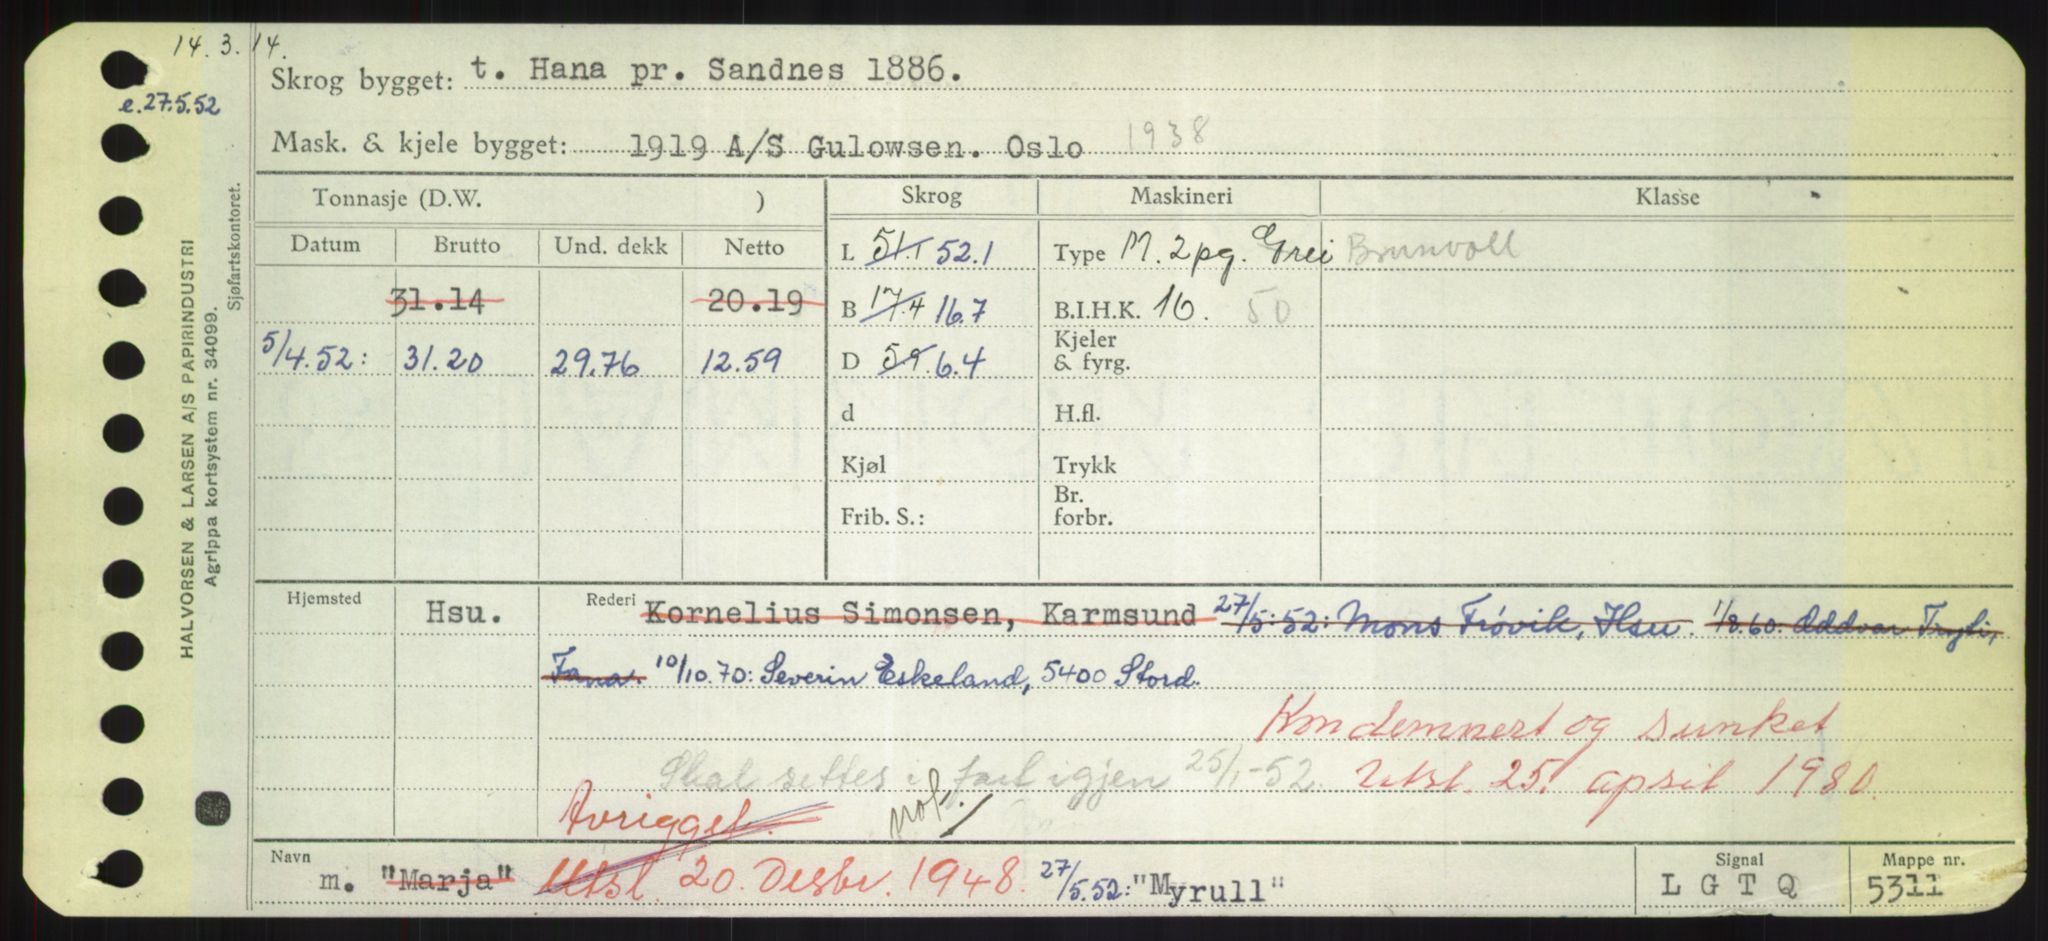 14. 3. 14.
e. 27.5.52
Skrog bygget: t. Hana pr. Sandnes 1886.
Mask. & kjele bygget: 1919 A/S Gulowsen. Oslo 1938
Tonnasje (D.W. ) Skrog Maskineri Klasse
Datum Brutto Und. dekk Netto L 51.1 52.1 Type M. 2pg. Grei Brunvoll
31.14 20.19 B 17.4 16.7 B.I.H.K. 10. 50
5/4.52: 31.20 29.76 12.59 D 5.9. 6.4 Kjeler & fyrg.
d H.fl.
Kjøl Trykk
Frib. S.: Br. forbr.
Hjemsted Hsu. Rederi Kornelius Simonsen, Karmsund 27/5.52: Mons Frøvik, Hsu. 1/8.60. Oddvar
Fana. 10/10.70: Severin Eskeland, 5400 Stord.
Kondemnert og sunket
Skal settes i fart igjen 25/1-52. Utsl. 25. april 1980.
Avrigget. not.
Navn m. "Marja" Utsl. 20. Desbr. 1948. 27/5.52: "Myrull" Signal L G T Q Mappe nr. 5311
HALVORSEN & LARSEN A/S PAPIRINDUSTRI
Agrippa kortsystem nr. 34099.
Sjøfartskontoret.